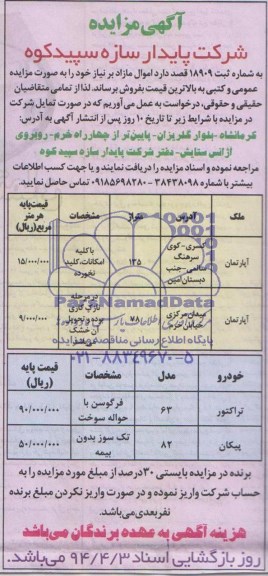 آگهی مزایده
شرکت پایدار سازه سپیدکوه
به شماره ثبت ۱۸۹۰۹ قصد دارد اموال مازاد بر نیاز خود را به صورت مزایده
عمومی و کتبی به بالاترین قیمت بفروش برساند. لذا از تمامی متقاضیان
حقیقی و حقوقی، درخواست به عمل می‌آوریم که در صورت تمایل شرکت
در مزایده با شرایط زیر تا تاریخ ۱۰ روز پس از انتشار آگهی به آدرس:
کرمانشاه - بلوار گلریزان - پایین‌تر از چهارراه خرم - روبروی
آژانس ستایش - دفتر شرکت پایدار سازه سپید کوه
مراجعه نموده و اسناد مزایده را دریافت نمایند و یا جهت کسب اطلاعات
بیشتر با شماره ۳۸۴۳۸۰۹۸ - ۰۹۱۸۵۶۹۸۲۸۰ تماس حاصل نمایید.
ملک آدرس متراژ مشخصات قیمت پایه هر متر مربع (ریال)
آپارتمان کسری - کوی سرهنگ - جنب دبستان ۱۳۵ با کلیه امکانات، کلید نخورده ۱۵/۰۰۰/۰۰۰
آپارتمان میدان مرکزی خیابان ۷۸ در مرحله نازک کاری بوده و تحویل آن خشک ۹/۰۰۰/۰۰۰
ParsNamadData
پایگاه اطلاع رسانی مناقصه و مزایده
۰۲۱-۸۸۳۴۹۶۷۰-۵
خودرو مدل مشخصات قیمت پایه (ریال)
تراکتور ۶۳ فرگوسن با حواله سوخت ۹۰/۰۰۰/۰۰۰
پیکان ۸۲ تک سوز بدون بیمه ۵۰/۰۰۰/۰۰۰
برنده در مزایده بایستی ۳۰درصد از مبلغ مورد مزایده را به
حساب شرکت واریز نموده و در صورت واریز نکردن مبلغ برنده
نفربعدی می‌باشد.
هزینه آگهی به عهده برندگان می‌باشد
روز بازگشایی اسناد ۹۴/۴/۳ می‌باشد.